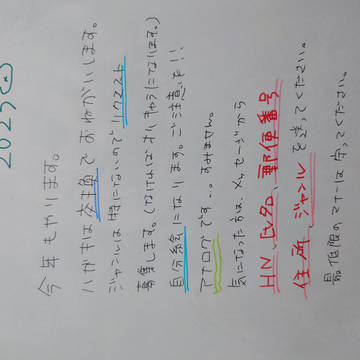 2025
今年もやります。
ハガキは でおねがいします。
ジャンルは特にないのでリクエスト
募集します。(なければオリキャラになります。)
自分絵になります。ご注意を!!
アナログです...すみません。
気になった方は、メッセージから
HN、氏名、郵便番号
住所、ジャンルを送ってください。
最低限のマナーは守ってください。